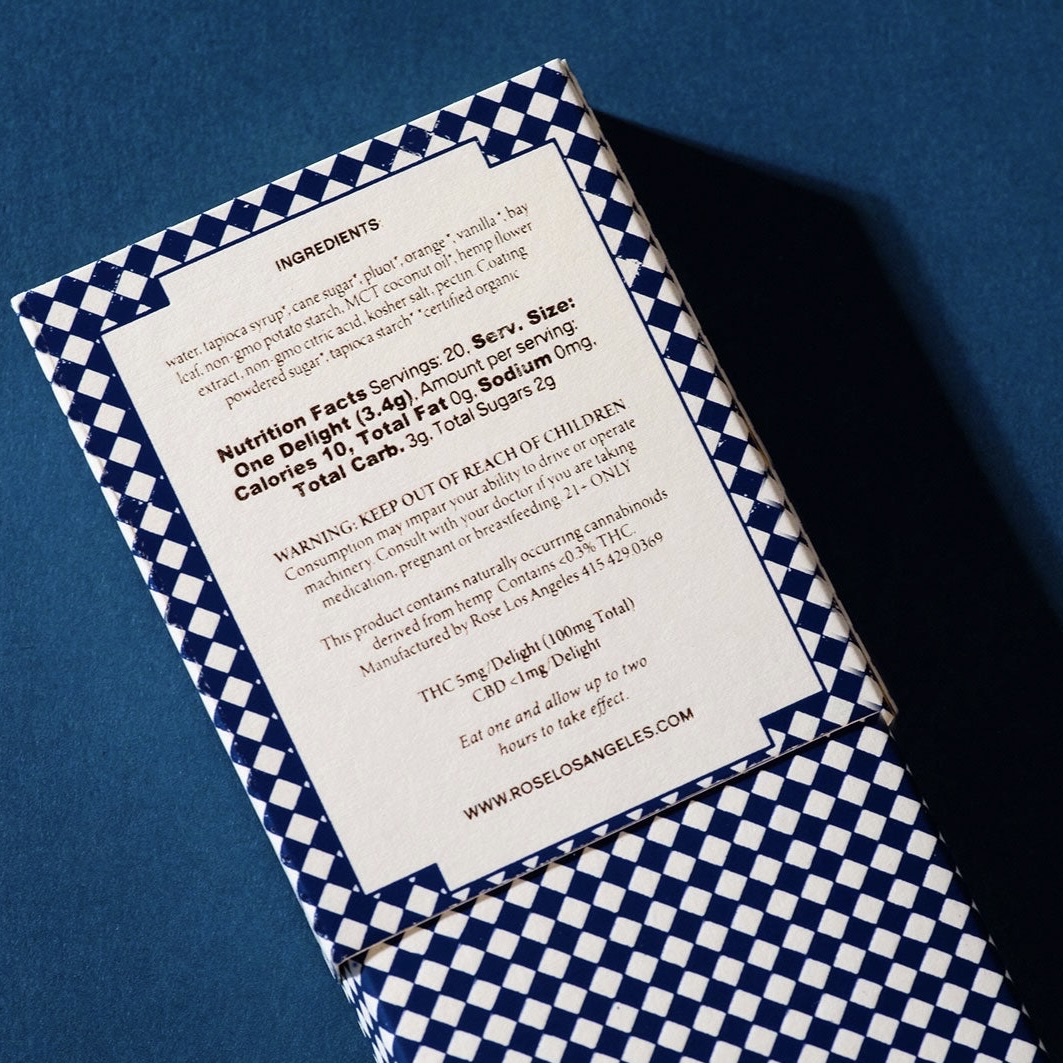 INGREDIENTS
water, tapioca syrup*, cane sugar*, pluot*, orange*, vanilla*, bay
leaf, non-gmo potato starch, MCT coconut oil*, hemp flower
extract, non-gmo citric acid, kosher salt, pectin. Coating
powdered sugar*, tapioca starch* *certified organic
Nutrition Facts Servings: 20, Serv. Size:
One Delight (3.4g), Amount per serving:
Calories 10, Total Fat 0g, Sodium 0mg,
Total Carb. 3g, Total Sugars 2g
WARNING: KEEP OUT OF REACH OF CHILDREN
Consumption may impair your ability to drive or operate
machinery. Consult with your doctor if you are taking
medication, pregnant or breastfeeding. 21+ ONLY
This product contains naturally occurring cannabinoids
derived from hemp. Contains <0.3% THC.
Manufactured by Rose Los Angeles 415 429 0369
THC 5mg/Delight (100mg Total)
CBD <1mg/Delight
Eat one and allow up to two
hours to take effect.
WWW.ROSELOSANGELES.COM